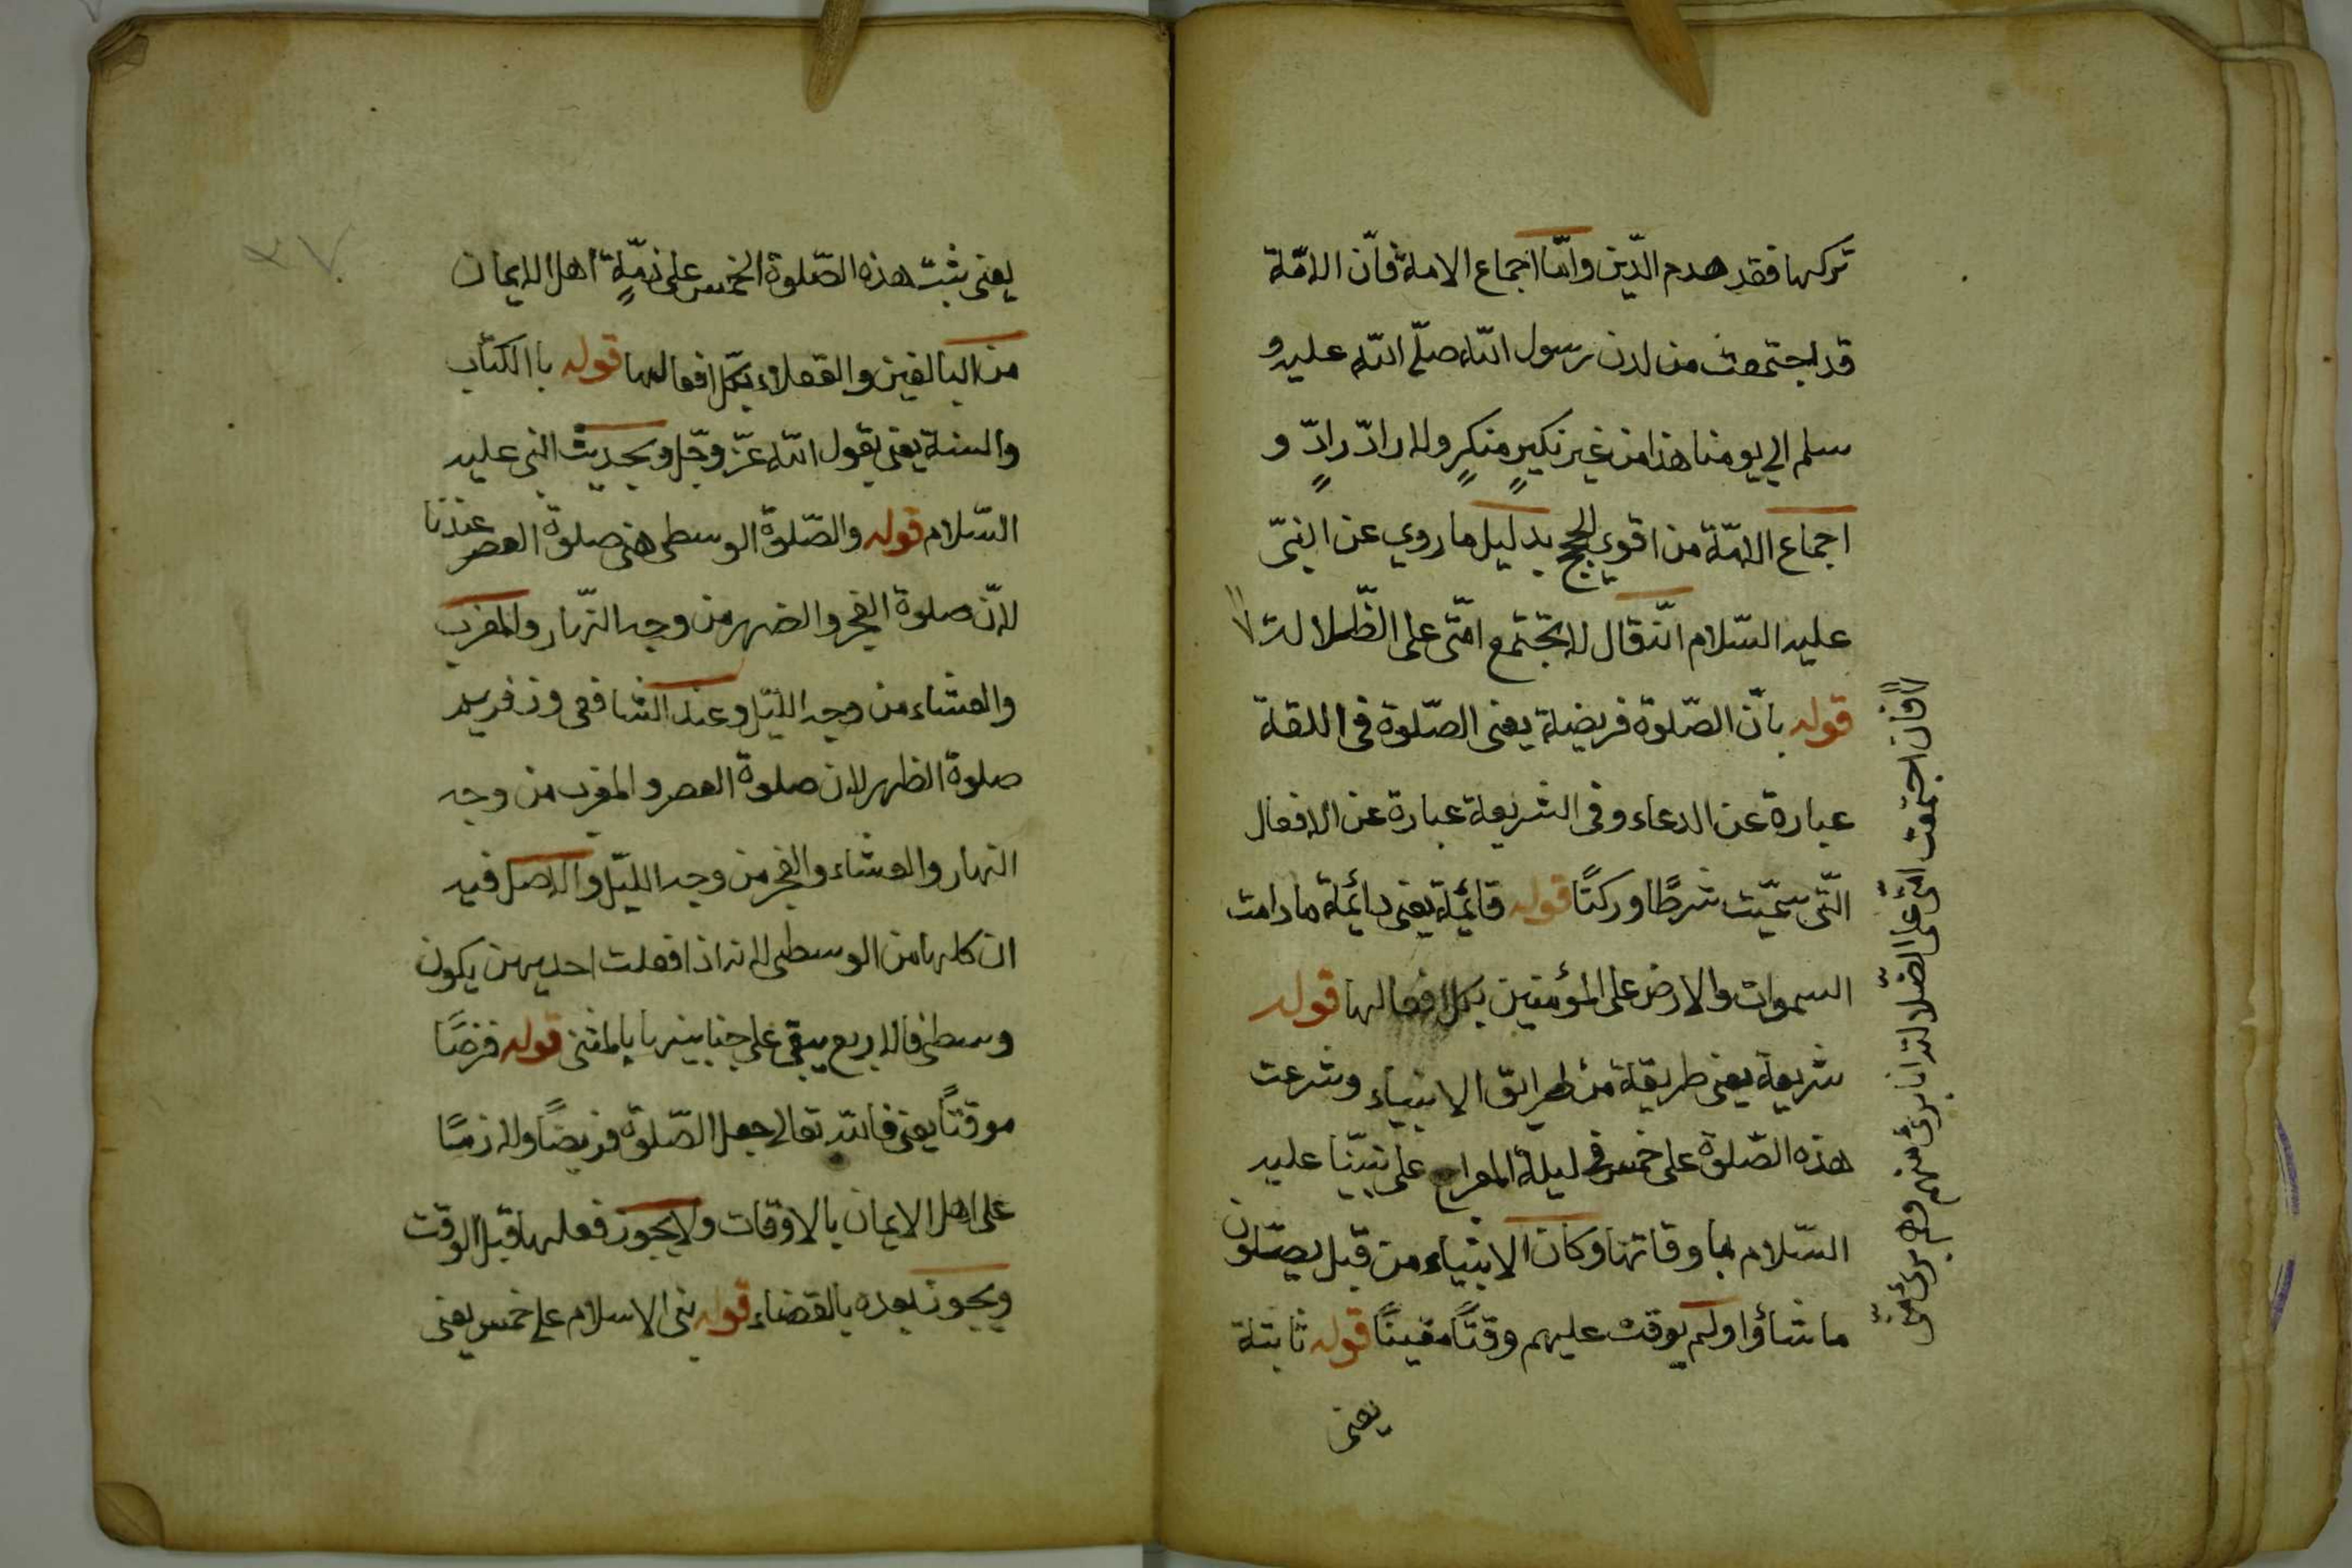 تركها فقد هدم الدّين وامّا اجماع الامة فانّ الامّة
قد اجتمعت من لدن رسول اللّه صلّى اللّه عليه و
سلم الي يومنا هذا من غير نكيرٍ منكرٍ ولا رادّ رادٍّ و
اجماع الامّة من اقوي الحجج بدليل ما روي عن النبيّ
عليه السّلام انّه قال لا تجتمع امّتى على الضّلالة
قوله بانّ الصّلوة فريضة يعنى الصّلوة فى اللغة
عبارة عن الدعاء وفى الشريعة عبارة عن الافعال
الّتى سمّيت شرطًا وركنًا قوله قائمة يعنى دائمة مادامت
السموات والارض على المؤمنين بكل افعالها قوله
شريعة يعنى طريقة من طرائق الانبياء وشرعت
هذه الصّلوة على خمس فى ليلة المعراج على نبيّنا عليه
السّلام باوقاتها وكان الانبياء من قبل يصلّون
ما شاؤا ولم يوقت عليهم وقتًا معينًا قوله ثابتة
يعنى
فان اجتمعت امّتى على الضّلالة انا برئ منهم وهم برئ منّى
٣٧
يعنى يثبت هذه الصّلوة الخمس على ذمّةٍ اهل الايمان
من البالغين والعقلاء بكل افعالها قوله باالكتاب
والسنة يعنى بقول اللّه عزّ وجّل وبحديث النبى عليه
السّلام قوله والصّلوة الوسطى هى صلوة العصر عندنا
لانّ صلوة الفجر والضهر من وجه النّهار والمغرب
والعشاء من وجه اللّيل وعند الشافعى وزفر
صلوة الظهر لان صلوة العصر والمغرب من وجه
النهار والعشاء والفجر من وجه الليّل والاصل فيه
ان كلها من الوسطى لانه اذا فعلت احديهن يكون
وسطى فالاربع يبقى على جنابينها بالمثنى قوله فرضًا
موقتًا يعنى فاللّه تعالى جعل الصّلوة فريضًا ولازمًا
على اهل الايمان بالاوقات ولا يجوز فعلها قبل الوقت
ويجوز بعده بالقضاء قوله بنى الاسلام على خمس يعنى